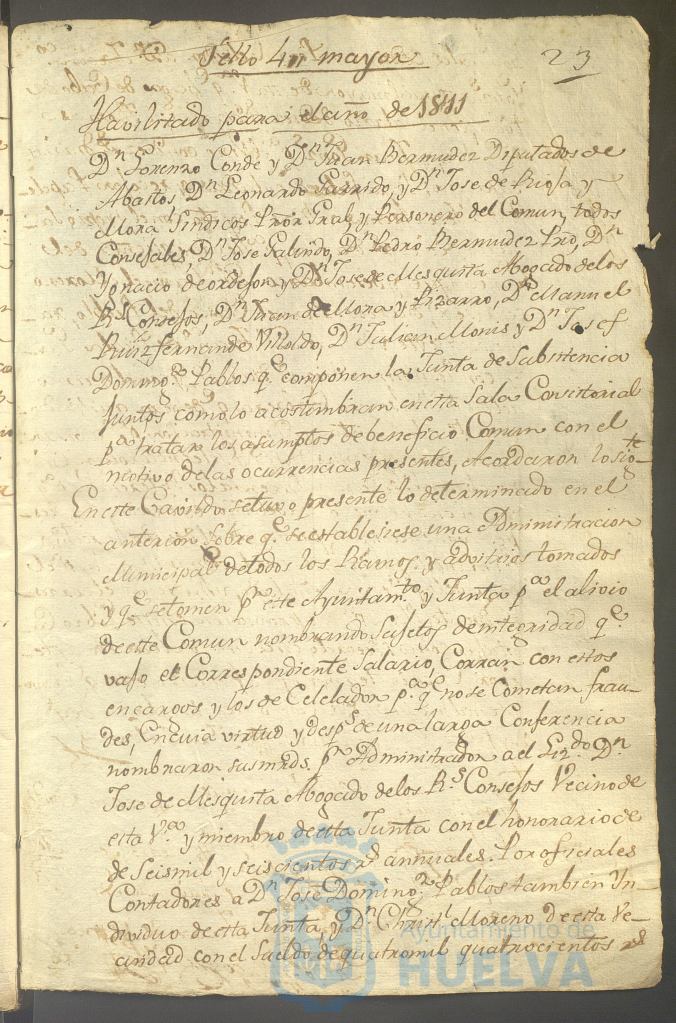 Sello 4º mayor
23
Havilitado para el año de 1811
Dⁿ Lorenzo Conde y Dⁿ Juan Bermudez Diputados de
Abastos, Dⁿ Leonardo Garrido, y Dⁿ Jose de Rioja y
Mora Sindicos Prõr Gral, y Personero del Comun, todos
Consejales, Dⁿ Jose Galindo, Dⁿ Pedro Bermudez Prõ, Dⁿ
Ygnacio de ordejon y Dⁿ Jose de Mesquita Abogado de los
Rˢ Consejos, Dⁿ Juan de Mora y Pizarro, Dⁿ Manuel
Ruiz Fernande Viloldo, Dⁿ Julian Monis y Dⁿ Josef
Domingᵒ Pablos qᵉ componen la Junta de Subsistencia
Juntos como lo acostumbran en esta Sala Consistorial
pᵃ tratar los asumptos de beneficio Comun con el
motivo de las ocurrencias presentes, Acordaron lo sigᵗᵉ
En este Cavildo se tuvo presente lo determinado en el
anterior sobre qᵉ se estableciese una Administracion
Municipal de todos los Ramos y advitrios tomados
y qᵉ se tomen pʳ este Ayuntamᵗᵒ y Junta pᵃ el alivio
de este Comun nombrando Sujetos de integridad qᵉ
vajo el Correspondiente Salario, Corran con estos
encargos y los de Celelador pᵃ qᵉ no se Cometan frau-
des, En cuia virtud y despˢ de una larga Conferencia
nombraron sus mrds. pʳ Administrador a el Lizᵈᵒ Dⁿ
Jose de Mesquita Abogado de los Rˢ Consejos Vecino de
esta Vᵃ y miembro de esta Junta con el honorario de
de Seis mil y seiscientos rˢ annuales. Por oficiales
Contadores a Dⁿ Jose Domingᵒ Pablos tambien Yn
dividuo de esta Junta, y Dⁿ Christˡ Moreno de esta Ve-
cindad con el Sueldo de quatro mil quatrocientos rˢ
Ayuntamiento de
HUELVA